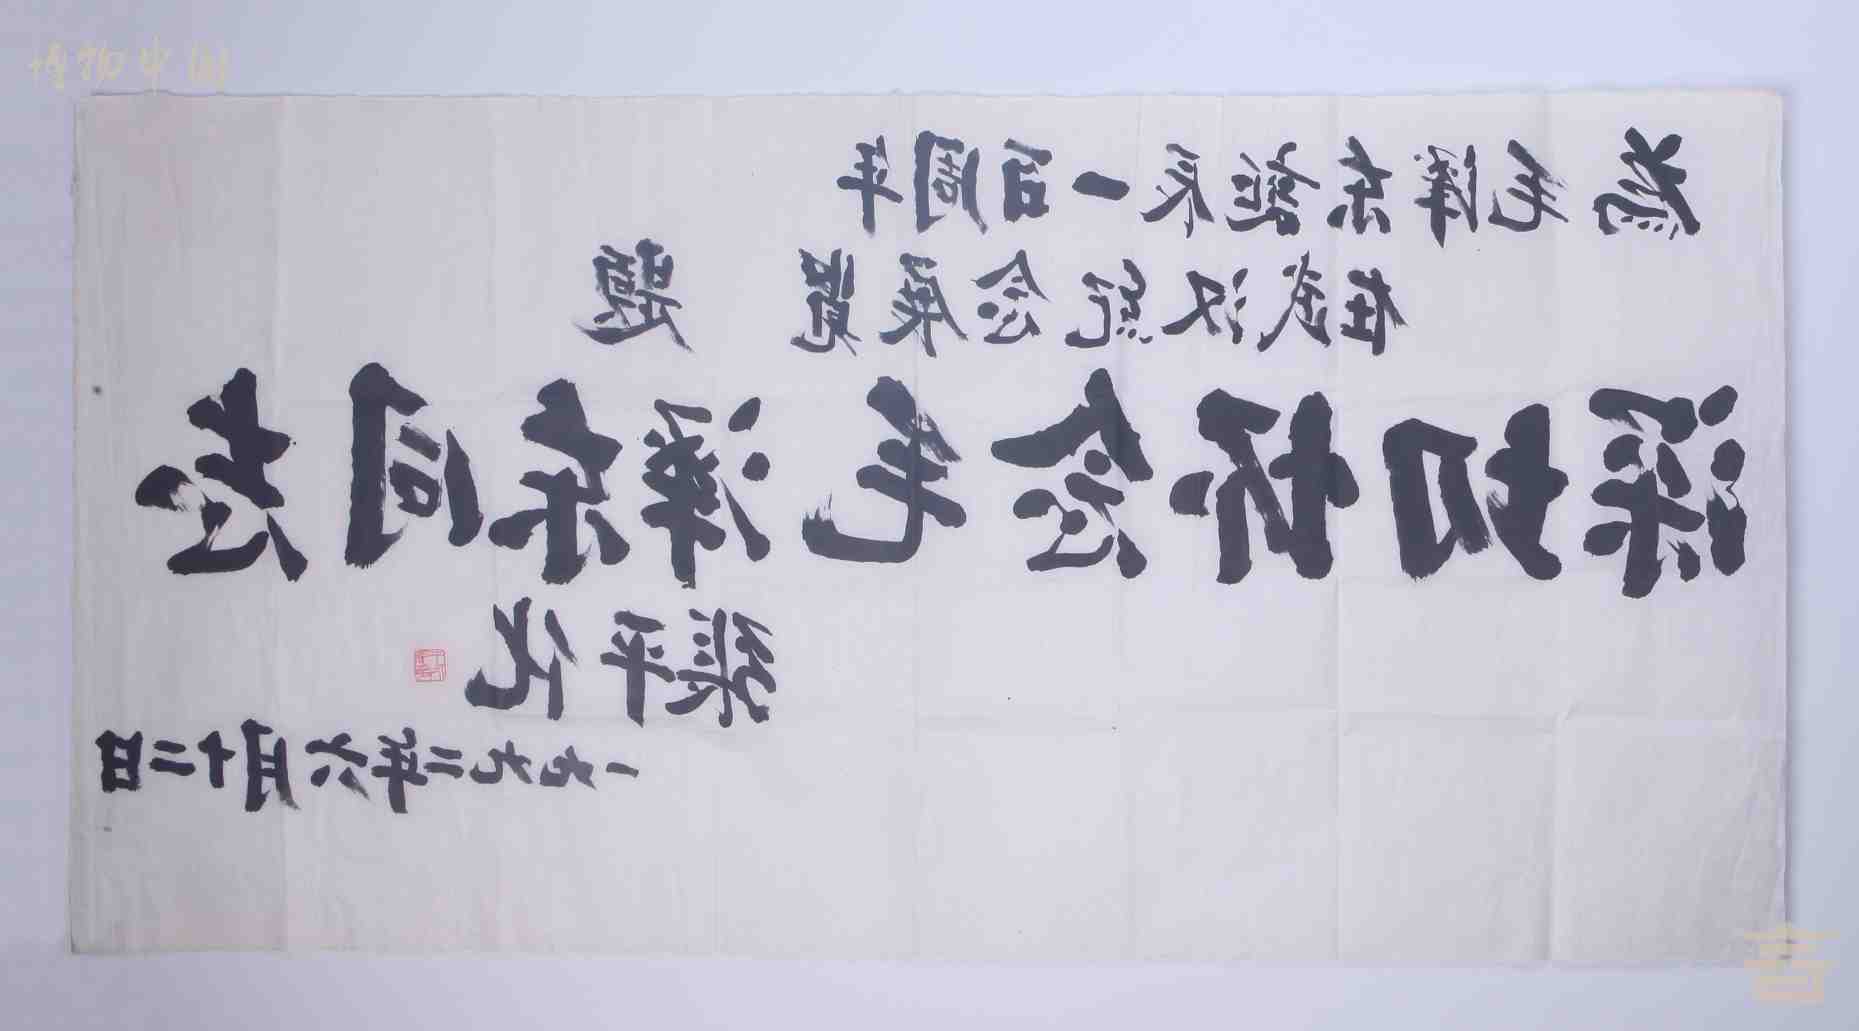 博物中国
為毛泽东誕辰一百周年
在武汉紀念展覽 題
深切怀念毛泽东同志
張平化
一九九二年六月十二日